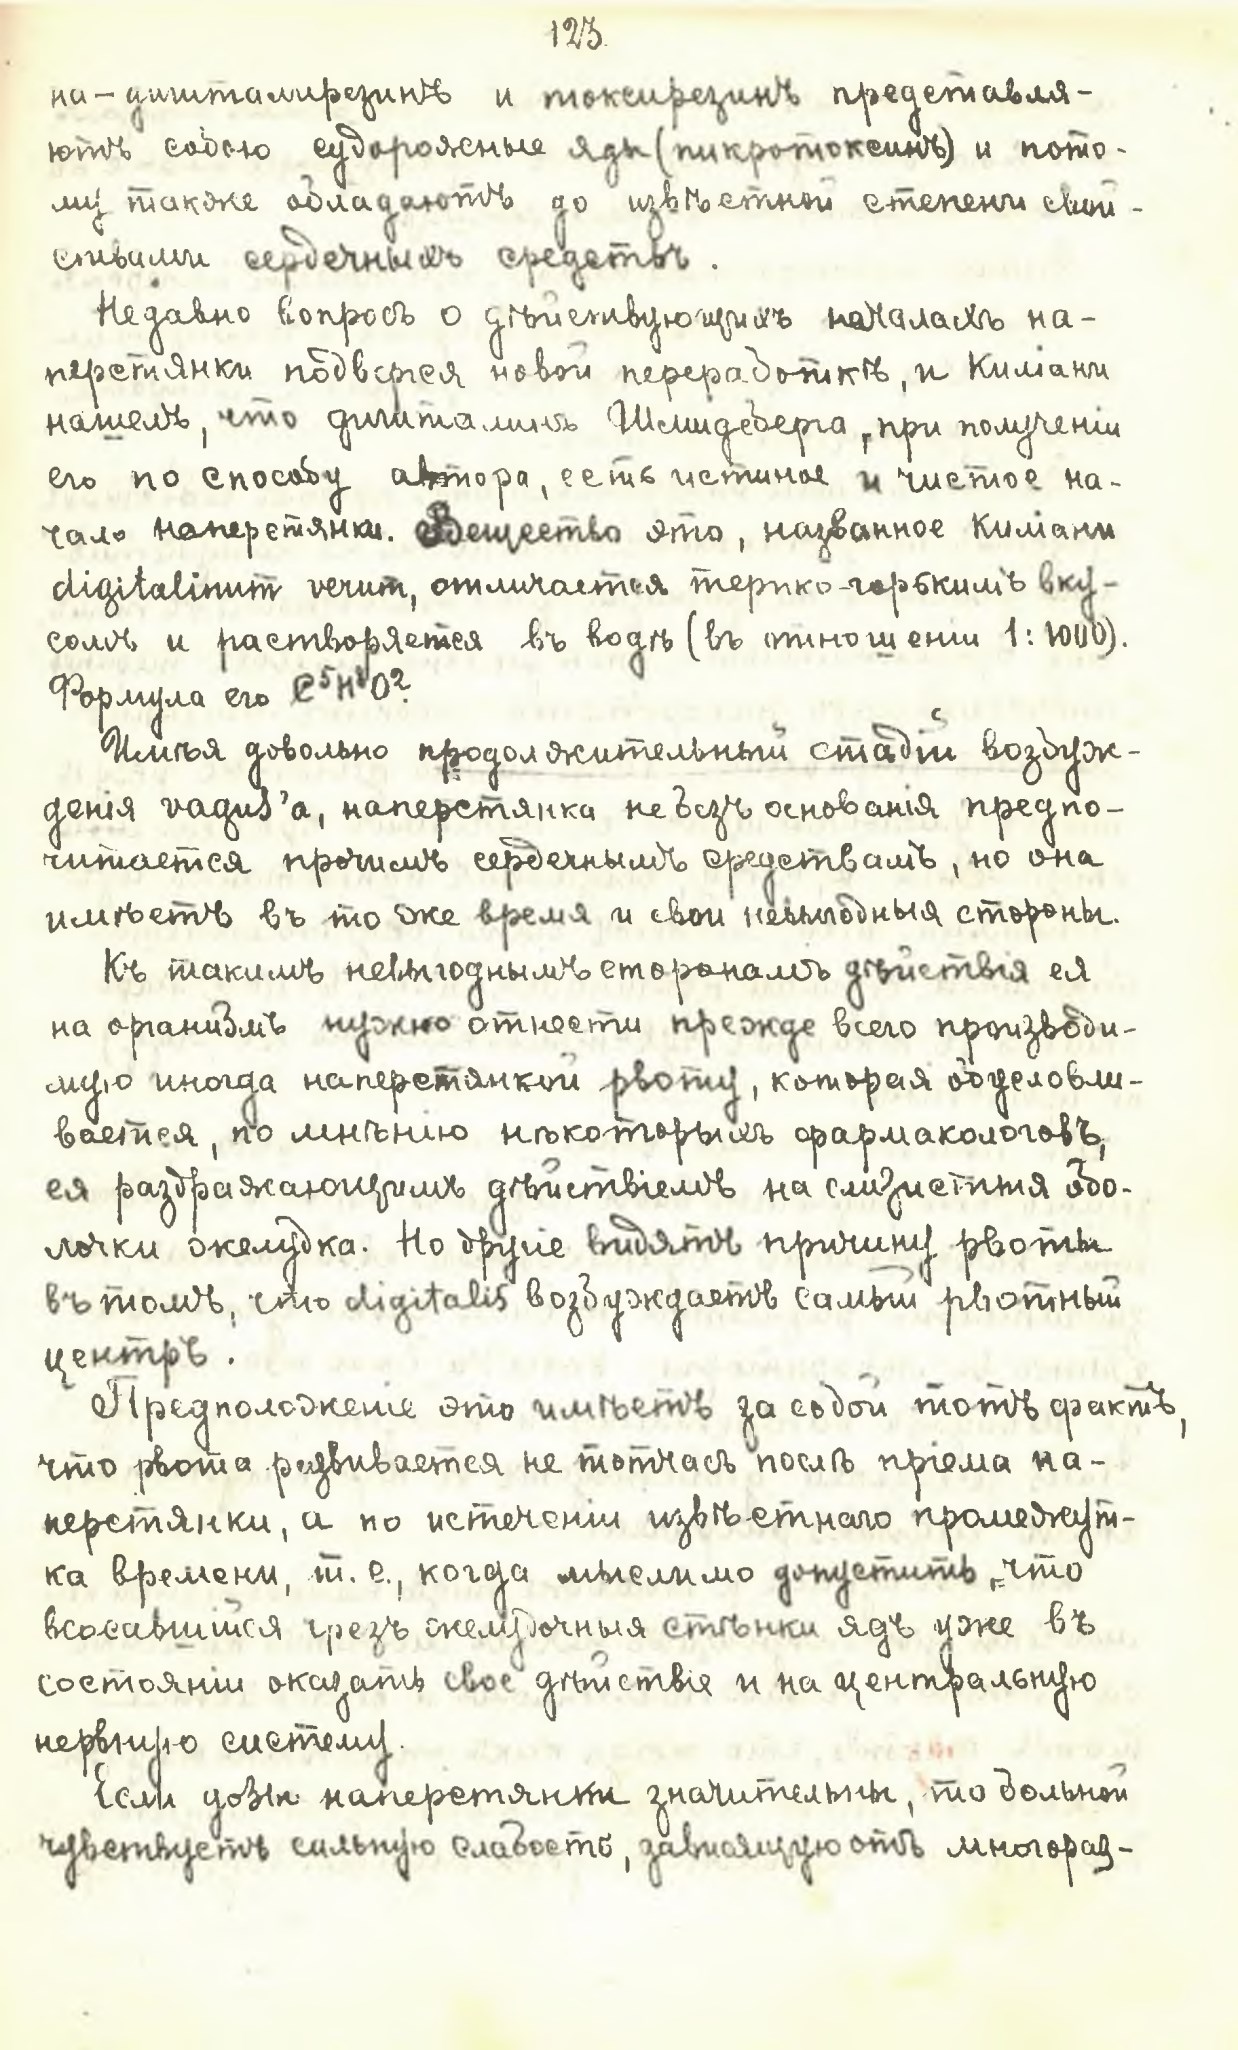 123.
на-дигиталирезинъ и токсирезинъ представля-
ютъ собою судорожные яды (пикротоксинъ) и пото-
му также обладаютъ до извѣстной степени свой-
ствами сердечныхъ средствъ.
Недавно вопросъ о дѣйствующихъ началахъ на-
перстянки подвергся новой переработкѣ, и Киліани
нашелъ, что дигиталинъ Шмидеберга, при полученіи
его по способу автора, есть истиное и чистое на-
чало наперстянки. Вещество это, названное Киліани
digitalinum verum, отличается терпко-горькимъ вку-
сомъ и растворяется въ водѣ (въ отношеніи 1:1000).
Формула его C⁵H⁸O².
Имѣя довольно продолжительный стадій возбуж-
денія vagus'a, наперстянка не безъ основанія предпо-
читается прочимъ сердечнымъ средствамъ, но она
имѣетъ въ то же время и свои невыгодныя стороны.
Къ такимъ невыгоднымъ сторонамъ дѣйствія ея
на организмъ нужно отнести прежде всего производи-
мую иногда наперстянкой рвоту, которая обусловли-
вается, по мнѣнію нѣкоторыхъ фармакологовъ,
ея раздражающимъ дѣйствіемъ на слизистыя обо-
лочки желудка. Но другіе видятъ причину рвоты
въ томъ, что digitalis возбуждаетъ самый рвотный
центръ.
Предположеніе это имѣетъ за собой тотъ фактъ,
что рвота развивается не тотчасъ послѣ пріема на-
перстянки, а по истеченіи извѣстнаго промежут-
ка времени, т.е., когда мыслимо допустить, что
всосавшійся чрезъ желудочныя стѣнки ядъ уже въ
состояніи оказать свое дѣйствіе и на центральную
нервную систему.
Если дозы наперстянки значительны, то больной
чувствуетъ сильную слабость, зависящую отъ многораз-